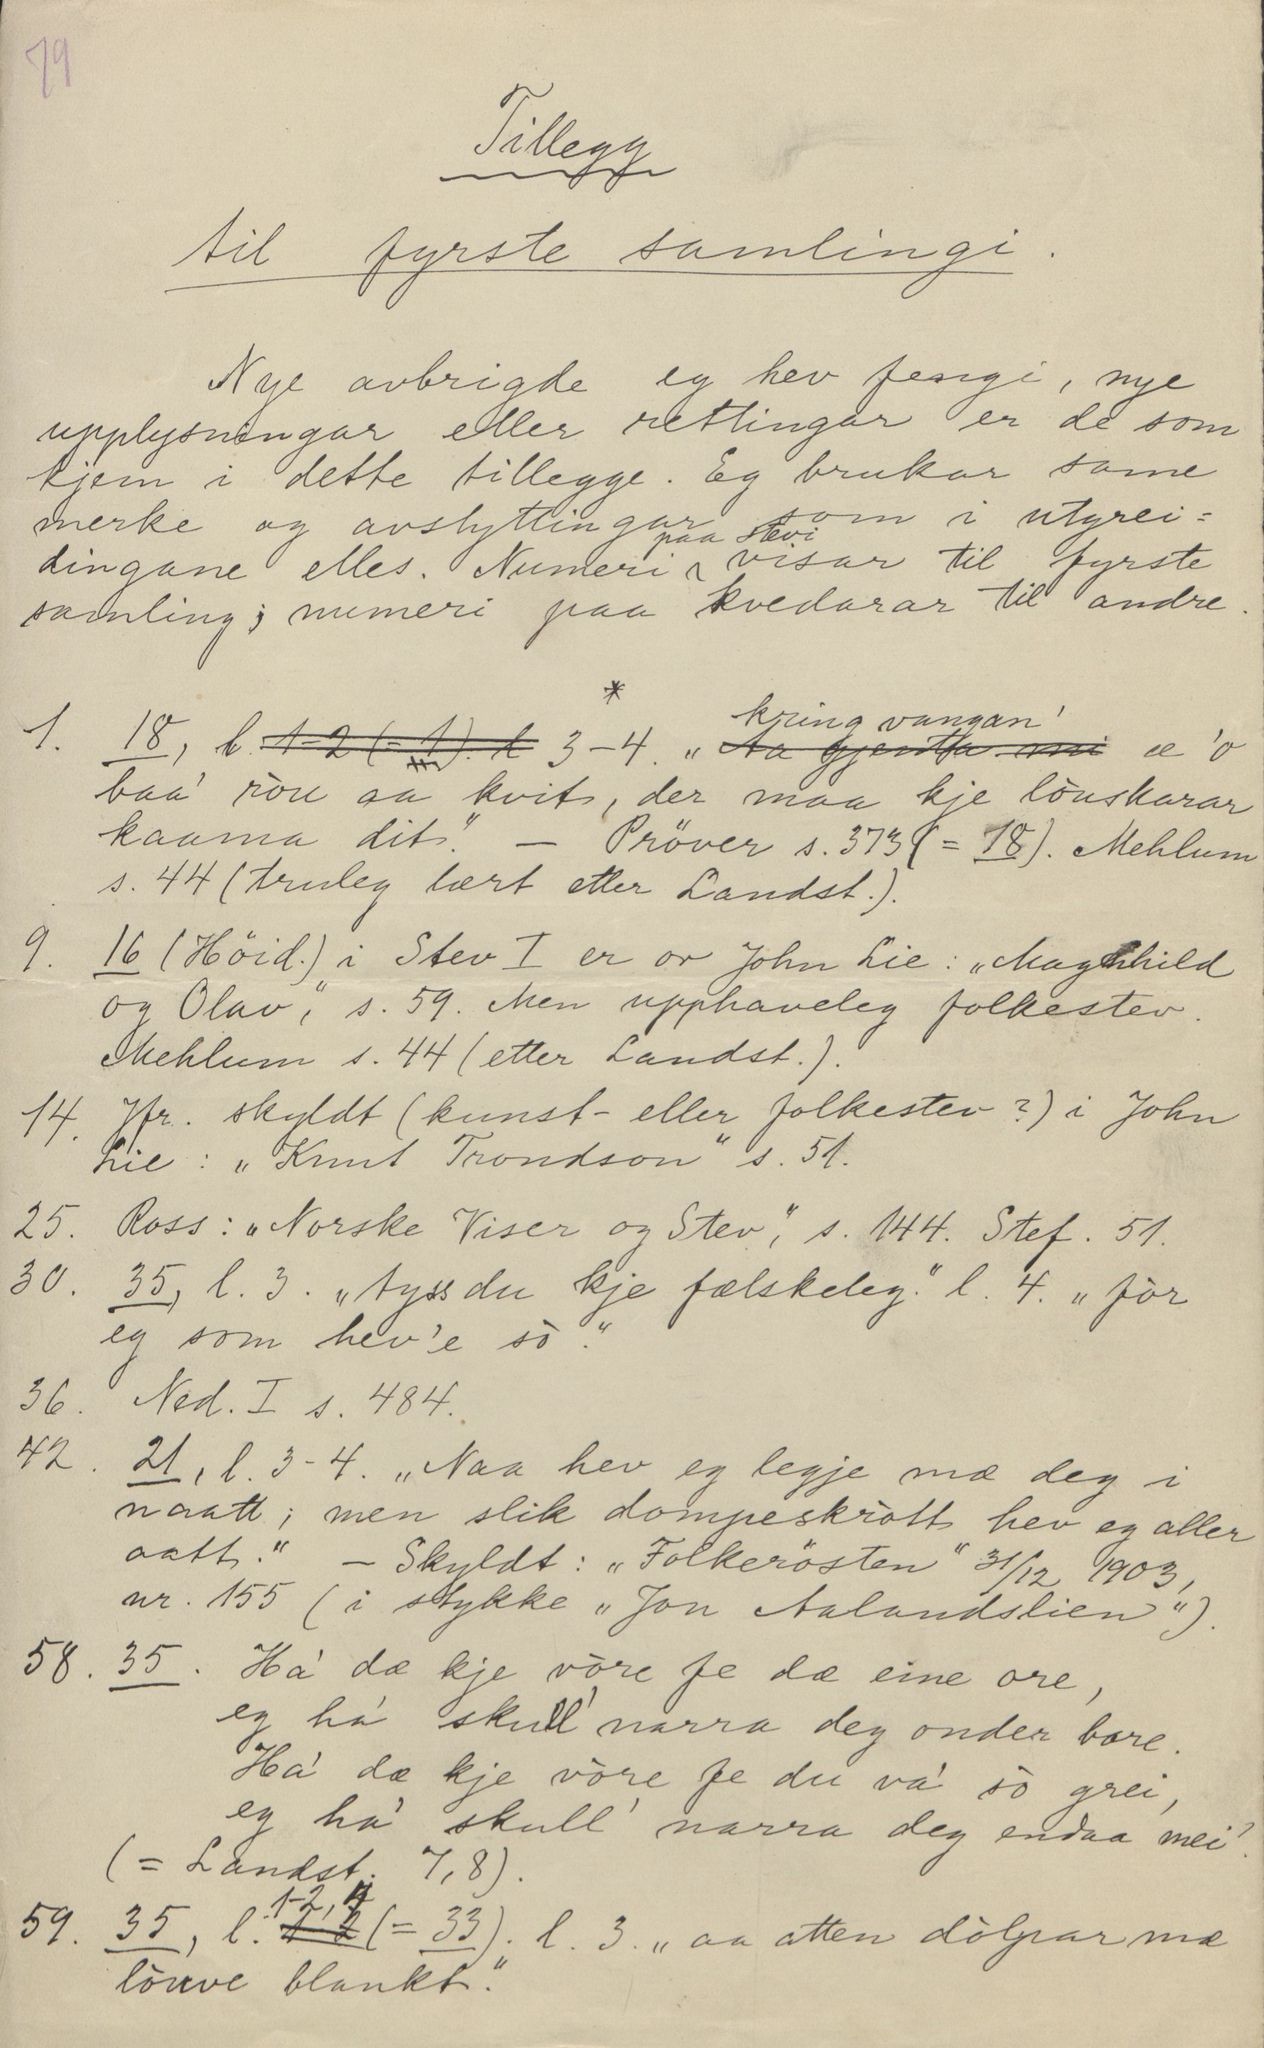 79
Tillegg
til fyrste samlingi.
Nye avbrigde eg hev fengi, nye
upplysningar eller rettingar er de som
kjem i dette tillegge. Eg brukar same
merke og avstyttingar som i utgrei=
dingane elles. Numeri paa stevi visar til fyrste
samling; numeri paa kvedarar til andre.
*
1. 18, l. 1-2 (= 1). l 3-4. „Aa gjenta mi kring vangan' æ 'o
baa' röu aa kvit, der maa kje löuskarar
kaama dit." — Pröver s. 373 (= 18). Mehlum
s. 44 (truleg lært etter Landst.).
9. 16 (Höid.) i Stev I er or John Lie: „Magnhild
og Olav", s. 59. Men upphaveleg folkestev.
Mehlum s. 44 (etter Landst.).
14. Jfr. skyldt (kunst- eller folkestev?) i John
Lie: „Knut Trondson" s. 51.
25. Ross: „Norske Viser og Stev", s. 144. Stef. 51.
30. 35, l. 3. „tyss du kje fælskeleg." l. 4. „fòr
eg som hev'e sò."
36. Ned. I s. 484.
42. 21, l. 3-4. „Naa hev eg legje mæ deg i
naatt; men slik dompeskròtt hev eg aller
aatt." — Skyldt: „Folkerösten" 31/12 1903,
nr. 155 (i stykke „Jon Aalandslien").
58. 35. Ha' dæ kje vòre fe dæ eine are,
eg ha' skull' narra deg onder bare.
Ha' dæ kje vòre fe du va' sò grei,
eg ha' skull' narra deg endaa mei'.
(= Landst. 7,8).
59. 35, l. 1-2 1-2, 4 (= 33). l. 3. „aa atten dòlgrar mæ
löuve blankt."